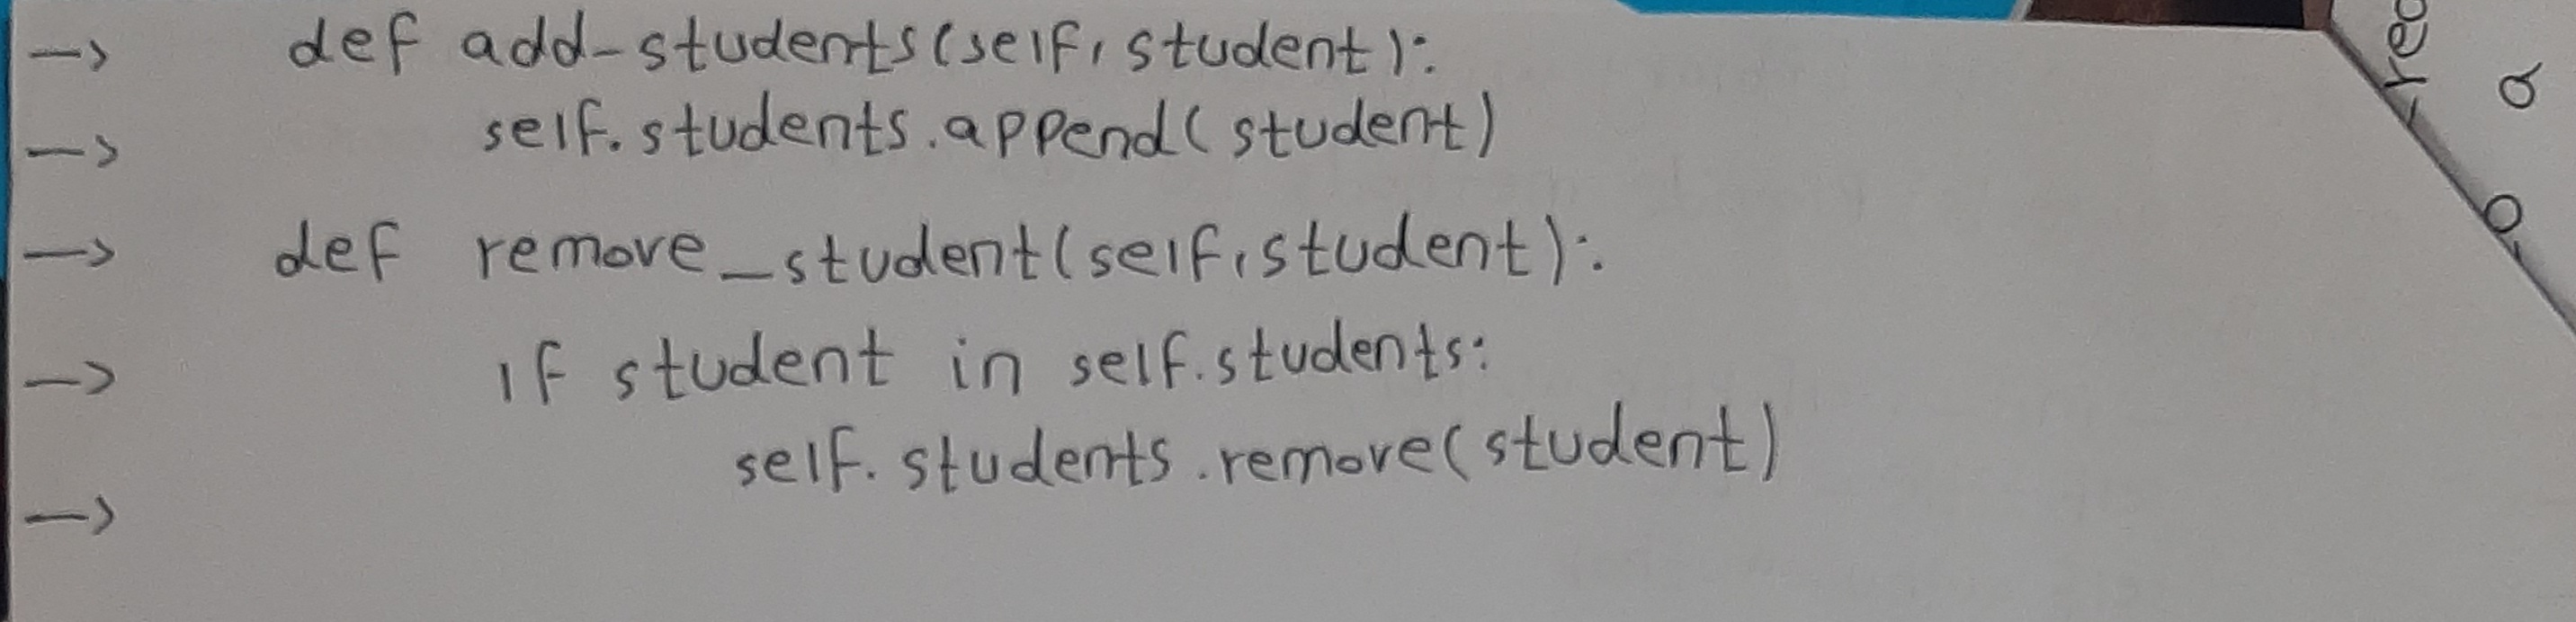 -> def add-students(self, student):
-> self.students.append(student)
-> def remove_student(self, student):
-> if student in self.students:
self.students.remove(student)
->